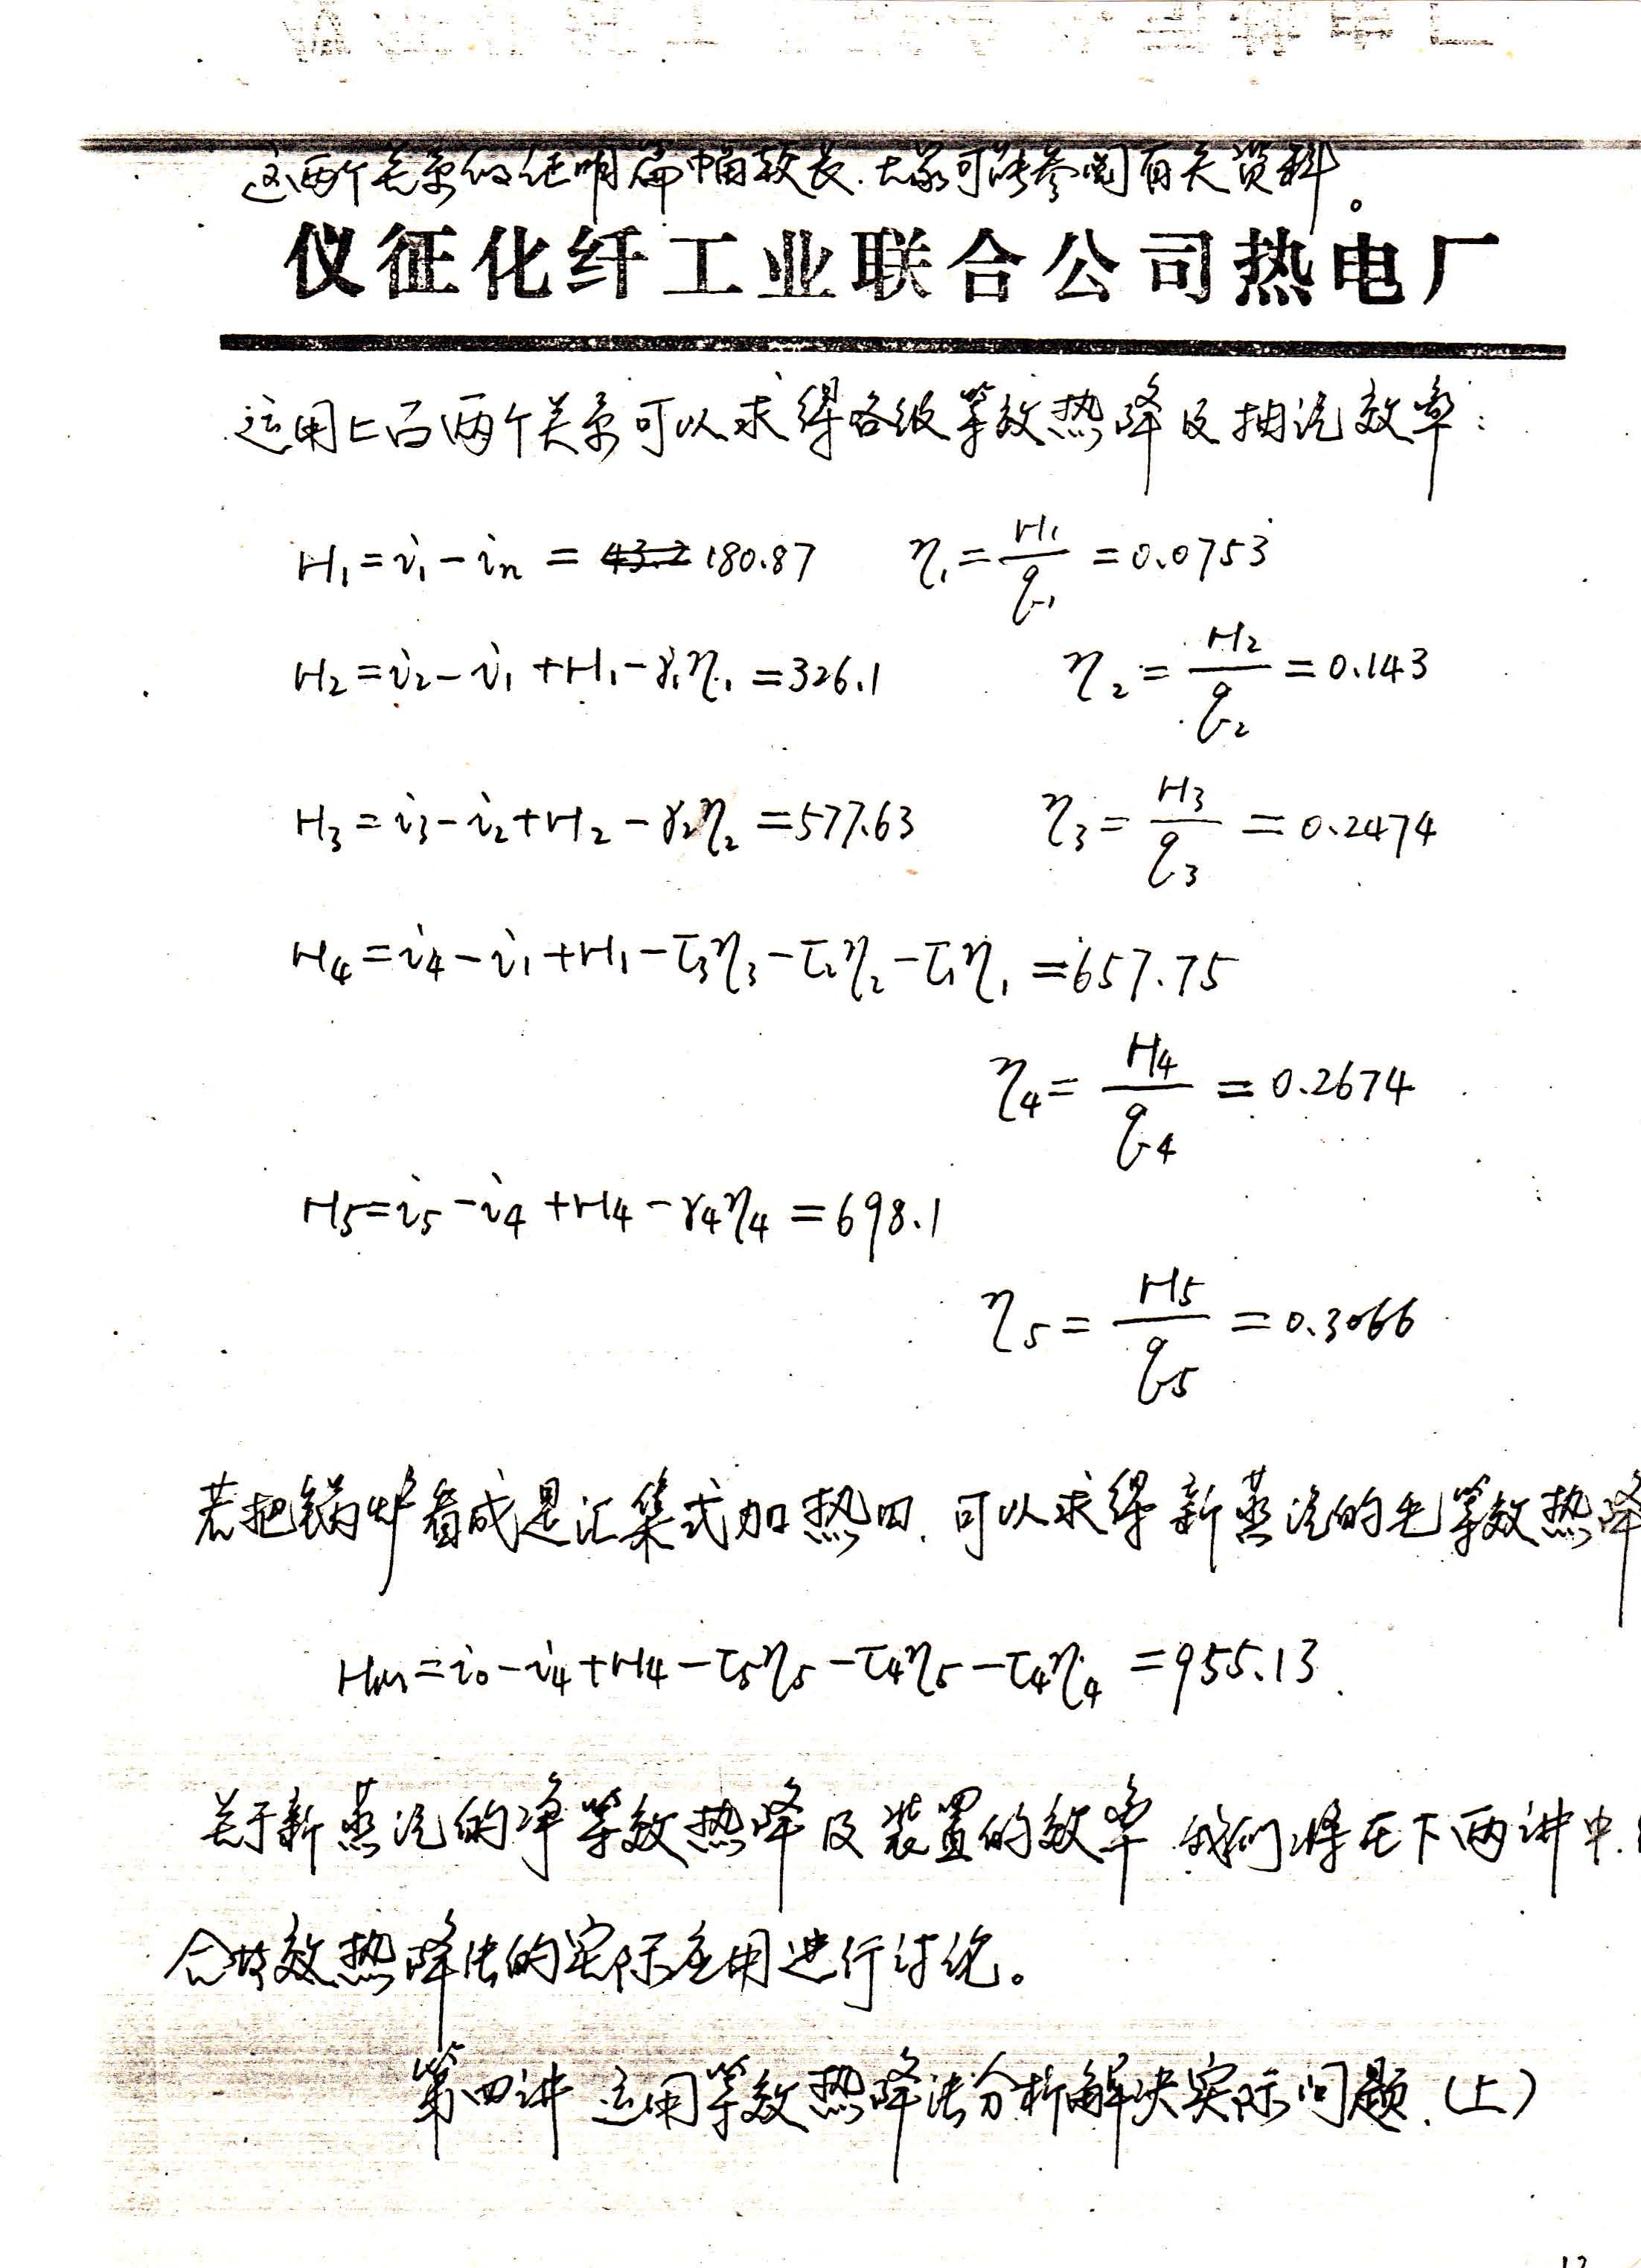 这两个关系的证明篇幅较长.大家可能参阅有关资料。
仪征化纤工业联合公司热电厂
运用上面两个关系可以求得各级等效热降及抽汽效率:
H₁=i₁-iₙ = 180.87 η₁=H₁/q₁=0.0753
H₂=i₂-i₁+H₁-γ₁η₁=326.1 η₂=H₂/q₂=0.143
H₃=i₃-i₂+H₂-γ₂η₂=577.63 η₃=H₃/q₃=0.2474
H₄=i₄-i₁+H₁-τ₃η₃-τ₂η₂-τ₁η₁=657.75
η₄=H₄/q₄=0.2674
H₅=i₅-i₄+H₄-γ₄η₄=698.1
η₅=H₅/q₅=0.3066
若把锅炉看成是汇集式加热口.可以求得新蒸汽的毛等效热降
Hₘ=i₀-i₄+H₄-τ₅η₅-τ₄η₅-τ₄η₄=955.13.
关于新蒸汽的净等效热降及装置的效率 我们将在下两讲中.
合等效热降法的实际应用进行讨论。
第四讲 运用等效热降法分析解决实际问题.(上)